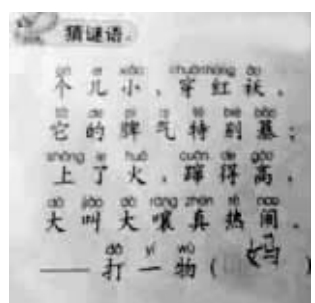 猜谜语。
gè er xiǎo chuānhóng ǎo
个儿小，穿红袄，
tā de pí qì tè bié bào
它的脾气特别暴；
shàng le huǒ cuān de gāo
上了火，蹿得高，
dà jiào dà rǎng zhēn rè nao
大叫大嚷真热闹。
dǎ yí wù
——打一物（ 妈 ）